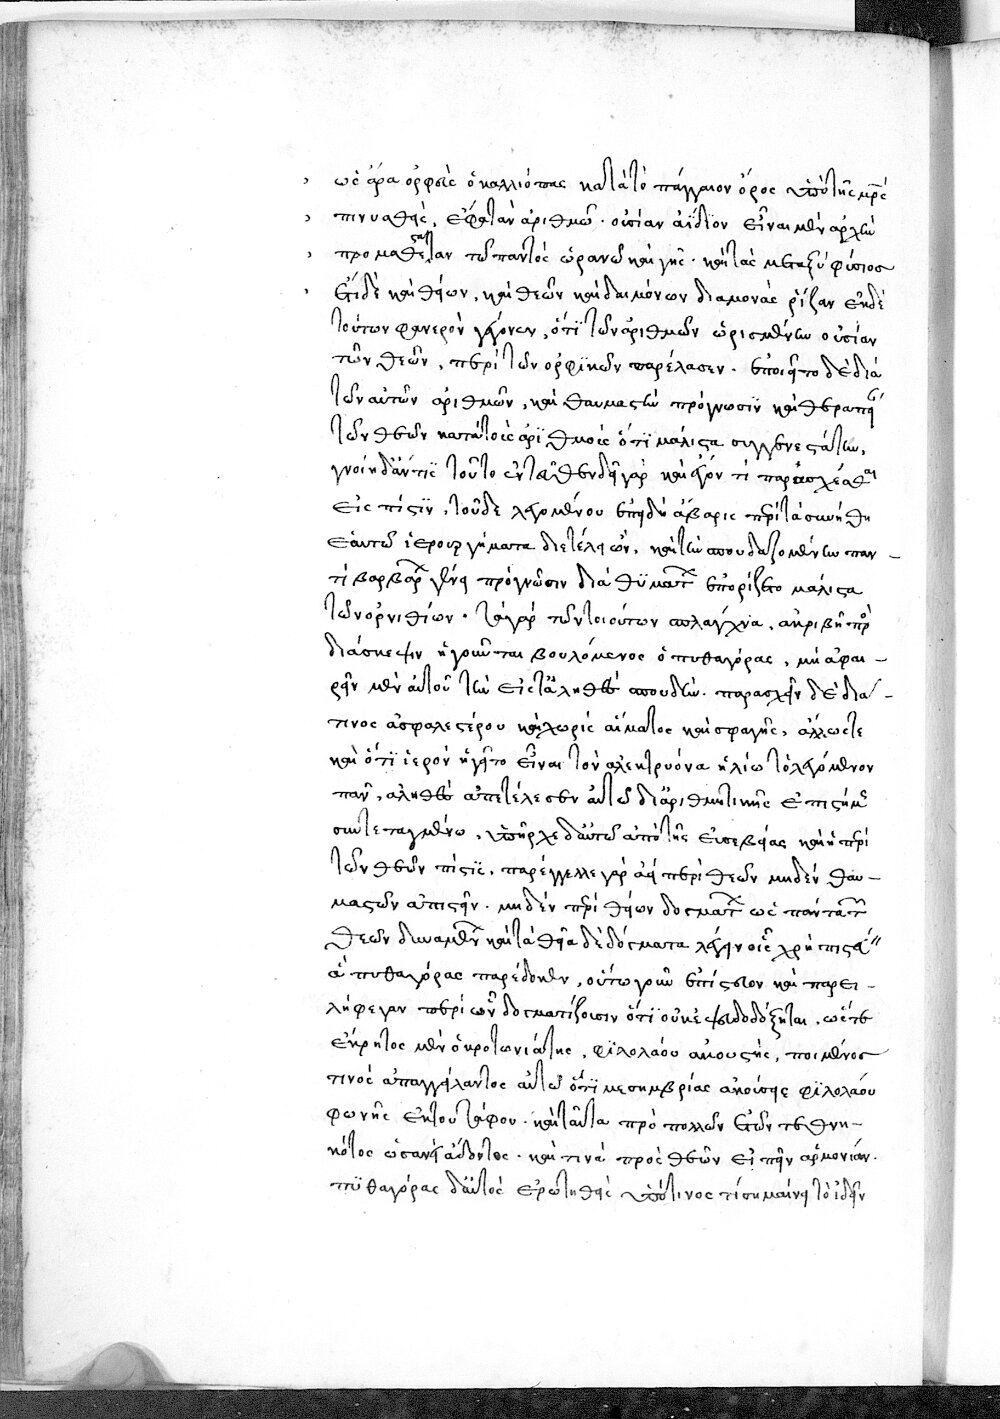 ὡς ἄρα ὀρφεὺς ὁ καλλιόπας κατὰ τὸ πάγγαιον ὄρος ὑπὸ τῆς μητρὸς
πινυσθεὶς, ἔφα τὰν ἀριθμῶ. οὐσίαν ἀΐδιον εἶναι μὲν ἀρχὰν
προμαθεστάταν τῶ παντὸς ὠρανῶ καὶ γῆς. καὶ τὰς μεταξὺ φύσιος
ἔτι δὲ καὶ θείων, καὶ θεῶν καὶ δαιμόνων διαμονὰς ῥίζαν ἐκ δὲ
τούτων φανερὸν γέγονεν, ὅτι τῶν ἀριθμῶν ὡρισμένην οὐσίαν
τῶν θεῶν, περὶ τῶν ὀρφικῶν παρέλαβεν. ἐποιεῖτο δὲ διὰ
τῶν αὐτῶν ἀριθμῶν, καὶ θαυμαστὴν πρόγνωσιν καὶ θεραπεί
τῶν θεῶν κατὰ τοὺς ἀριθμοὺς ὅτι μάλιστα συγγενεστάτην,
γνοίη δ' ἄν τις τοῦτο ἐντεῦθεν δεῖ γὰρ καὶ ἔργον τι παρασχέσθαι
εἰς πίστιν, τοῦδε λεγομένου ἐπειδὴ ἄβαρις περὶ τὰ συνήθη
ἑαυτῶ ἱερουργήματα διετέλει ὢν, καὶ τὴν σπουδαζομένην παν-
τὶ βαρβάρων γένει πρόγνωσιν διὰ θυμάτων ἐπορίζετο μάλιστα
τῶν ὀρνιθίων. τὰ γὰρ τῶν τοιούτων σπλάγχνα, ἀκριβῆ πρὸ
διάσκεψιν ἡγοῦνται βουλόμενος ὁ πυθαγόρας, μὴ ἀφαι-
ρεῖν μὲν αὐτοῦ τὴν εἰς τἀληθῆ σπουδὴν. παρασχεῖν δὲ διά-
τινος ἀσφαλεστέρου καὶ χωρὶς αἵματος καὶ σφαγῆς, ἄλλως τε
καὶ ὅτι ἱερὸν ἡγεῖτο εἶναι τὸν ἀλεκτρυόνα ἡλίω τὸ λεγόμενον
πᾶν, ἀληθὲς ἀπετέλεσεν αὐτῶ δι' ἀριθμητικῆς ἐπιστήμης
συντεταγμένω, ὑπῆρχε δ' αὐτῶ ἀπὸ τῆς εὐσεβείας καὶ ἡ περὶ
τῶν θεῶν πίστις, παρέγγελλε γὰρ ἀεὶ περὶ θεῶν μηδὲν θαυ-
μαστὸν ἀπιστεῖν. μηδὲν περὶ θείων δογμάτων ὡς πάντα τῶν
θεῶν δυναμένων καὶ τὰ θεῖα δὲ δόγματα λέγειν οἷς χρὴ πιστεύειν
ἃ πυθαγόρας παρέδωκεν, οὕτω γοῦν ἐπίστευον καὶ παρει-
λήφεσαν περὶ ὧν δογματίζουσιν ὅτι οὐκ ἐψευδοδόξηται, ὥστε
εὔρητος μὲν ὁ κροτωνιάτης, φιλολάου ἀκουστὴς, ποιμένος
τινὸς ἀπαγγείλαντος αὐτῶ ὅτι μεσημβρίας ἀκούσειε φιλολάου
φωνῆς ἐκ τοῦ τάφου. καὶ ταῦτα πρὸ πολλῶν ἐτῶν τεθνη-
κότος ὡσανεὶ ἄδοντος. καὶ τίνα πρὸς θεῶν εἰπεῖν ἁρμονίαν.
πυθαγόρας δ' αὐτὸς ἐρωτηθεὶς ὑπό τινος τί σημαίνει τὸ ἰδεῖν